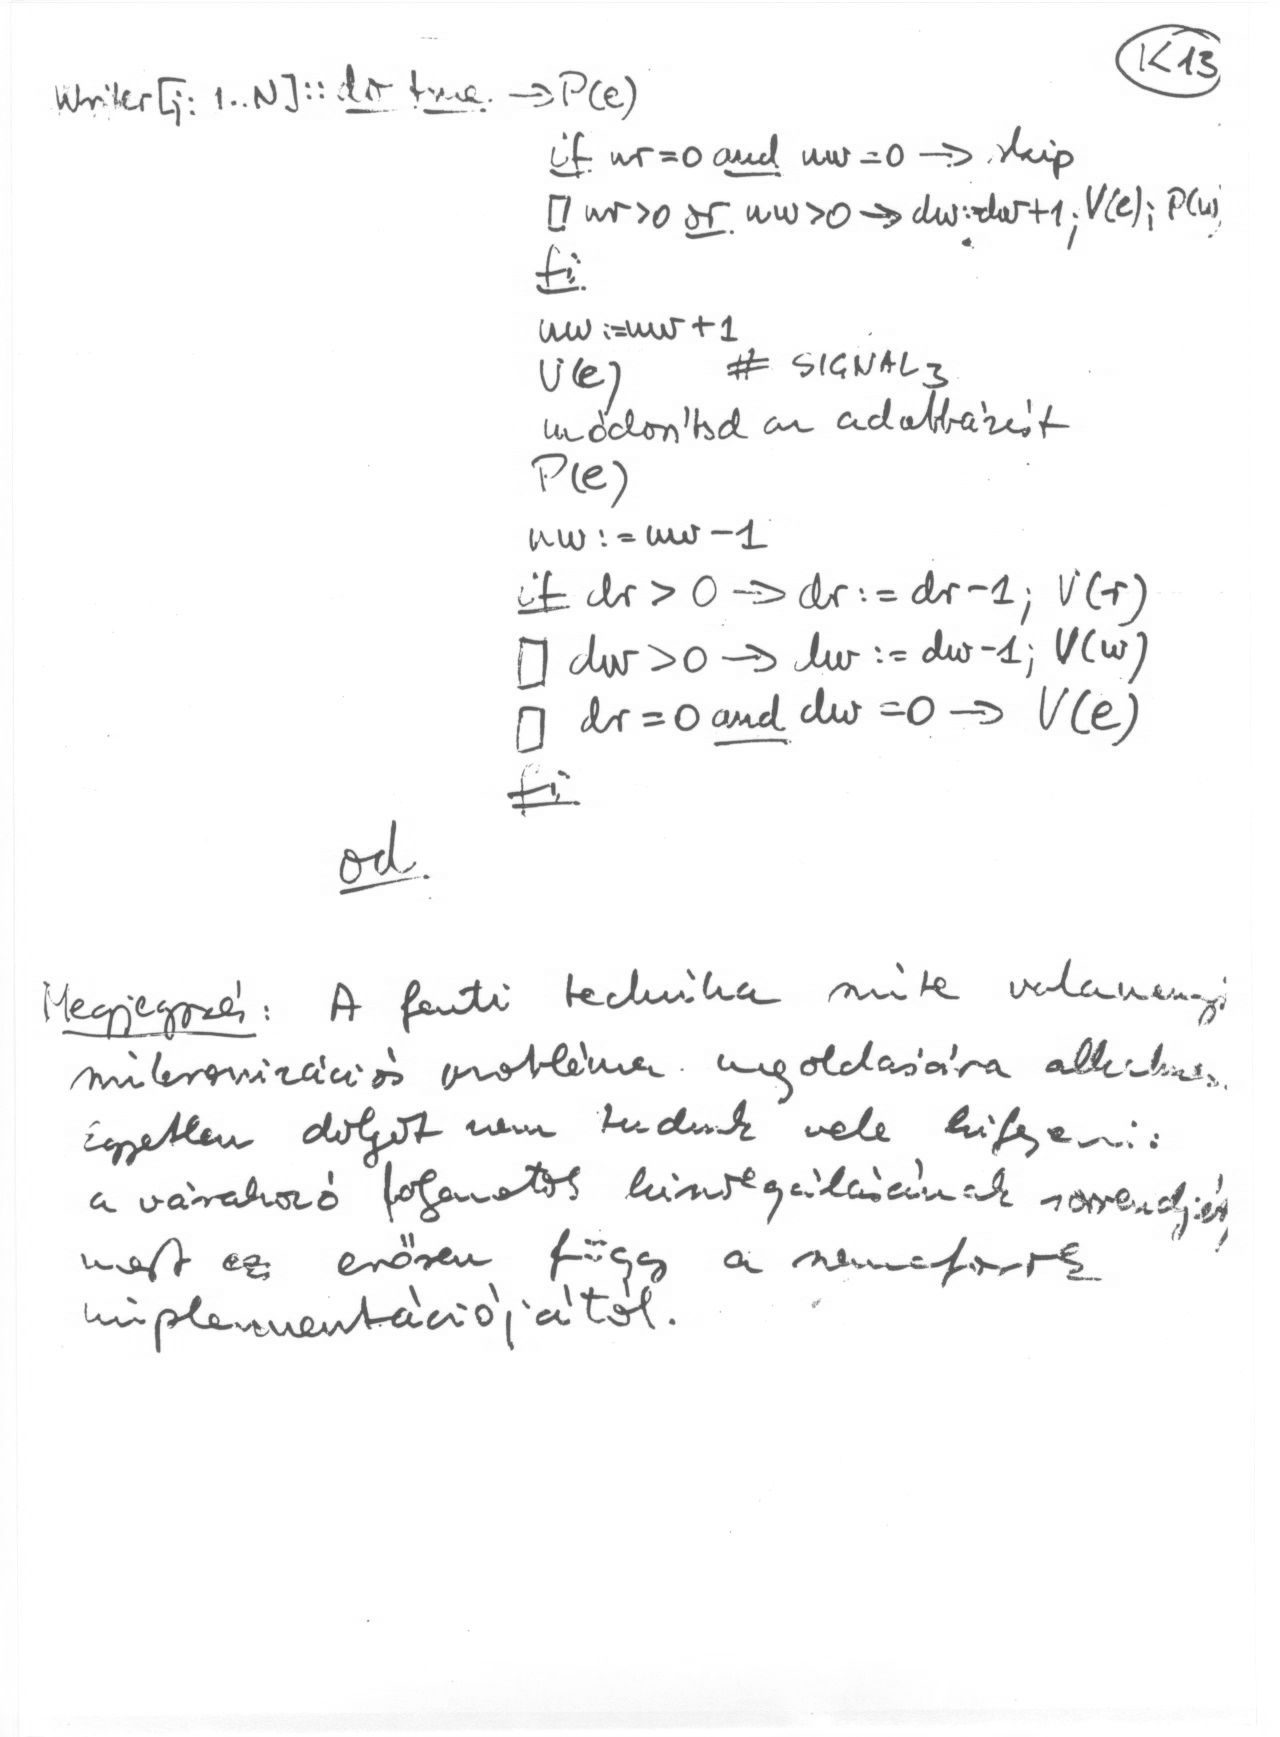 K13
Writer[j: 1..N]:: do true → P(e)
if nr=0 and nw=0 → skip
▯ nr>0 or nw>0 → dw:=dw+1; V(e); P(w)
fi
nw:=nw+1
V(e) # SIGNAL3
módosítsd az adatbázist
P(e)
nw:=nw-1
if dr>0 → dr:=dr-1; V(r)
▯ dw>0 → dw:=dw-1; V(w)
▯ dr=0 and dw=0 → V(e)
fi
od.
Megjegyzés: A fenti technika szinte valamennyi
szinkronizációs probléma megoldására alkalmas.
Egyetlen dolgot nem tudunk vele kifejezni:
a várakozó folyamatok kiszolgálásának sorrendjét,
mert ez erősen függ a szemaforok
implementációjától.